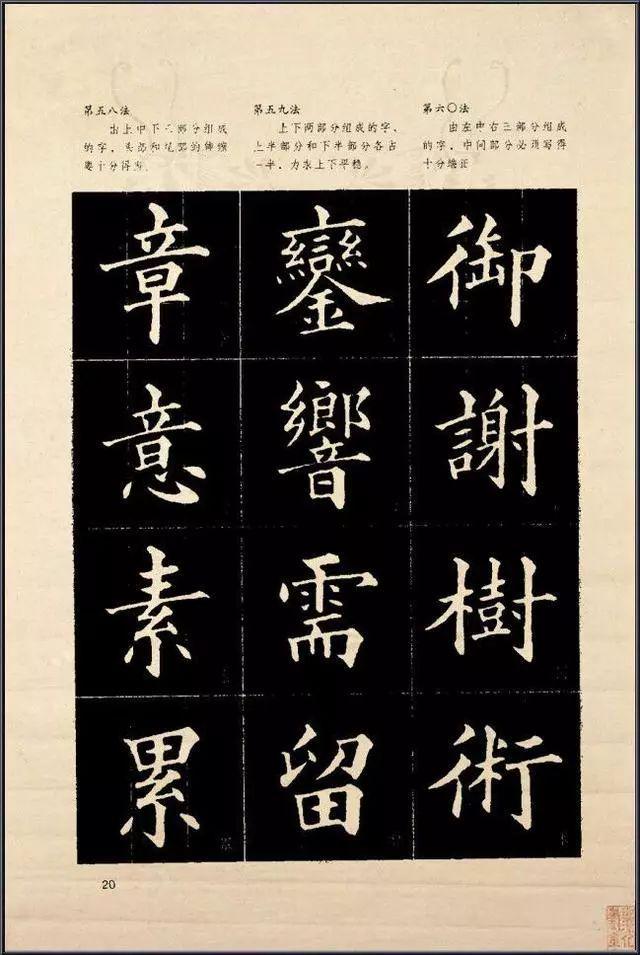 第五八法
由上中下三部分组成
的字，头部和尾部的伸缩
要十分得当。
第五九法
上下两部分组成的字、
上半部分和下半部分各占
一半，力求上下平稳。
第六〇法
由左中右三部分组成
的字，中间部分必须写得
十分端正
章 鑾 御
意 響 謝
素 需 樹
累 留 術
20